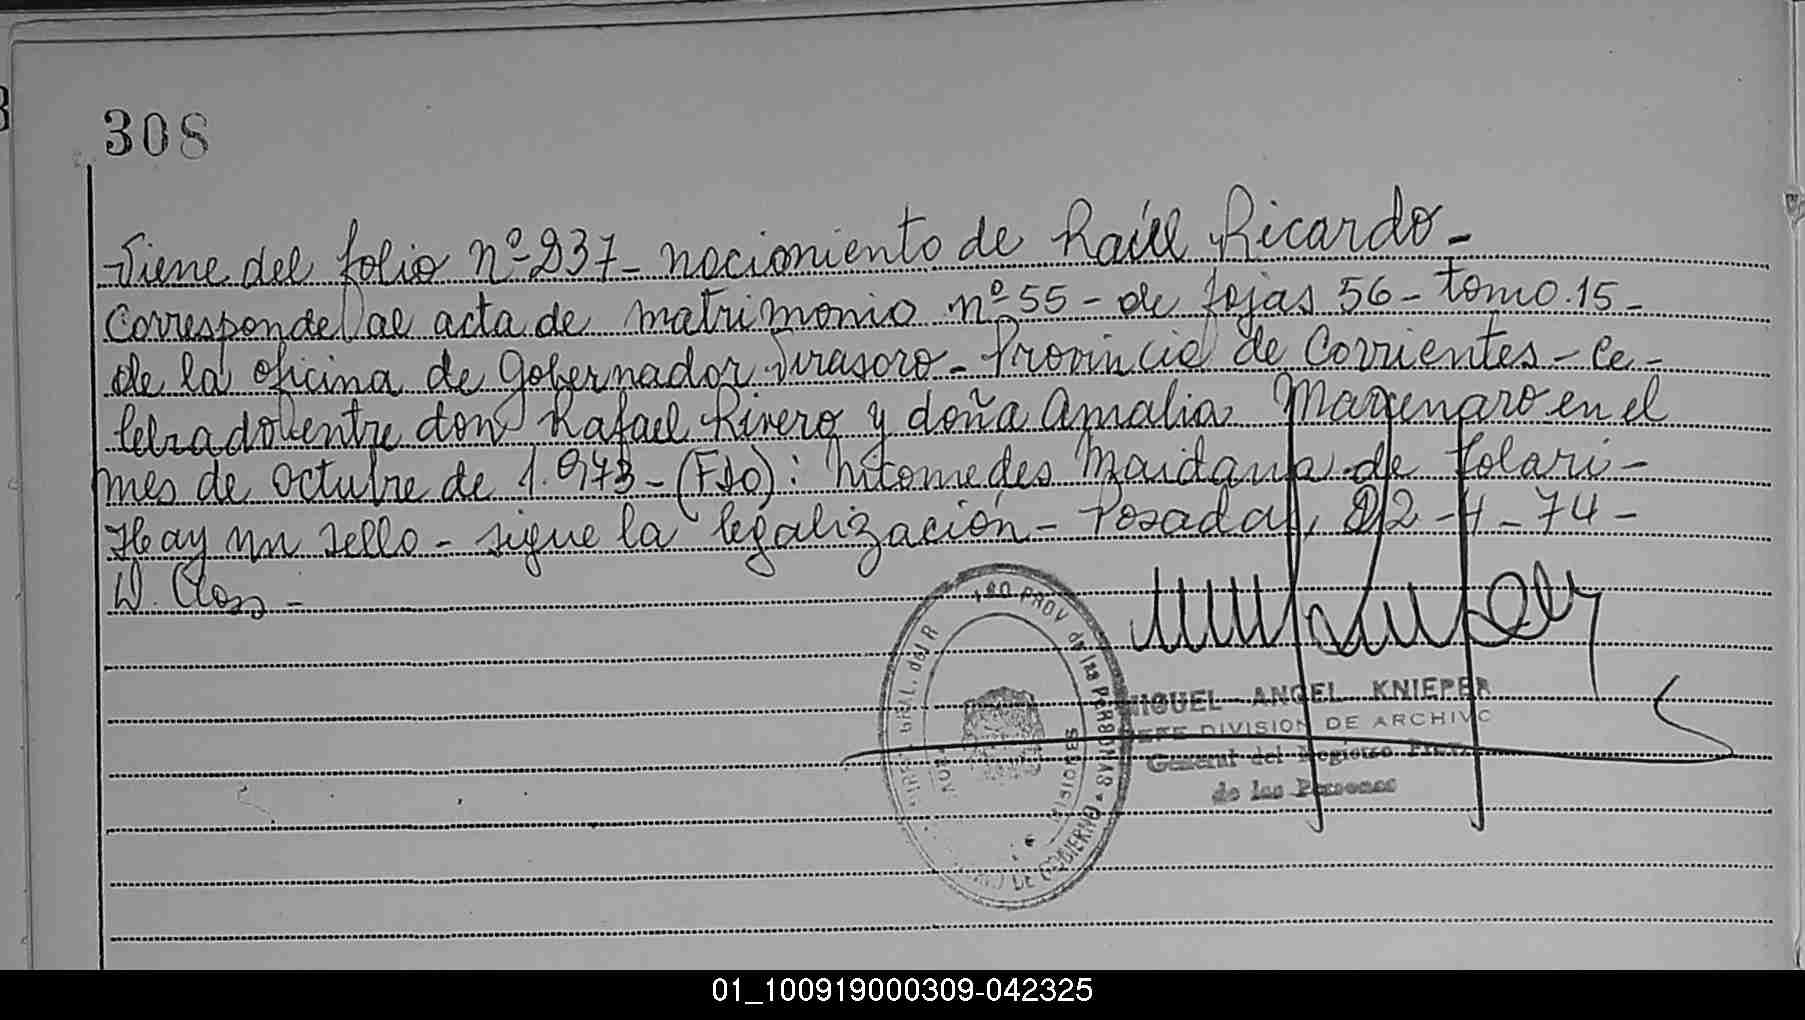 308
Viene del folio nº 237 - nacimiento de Raúl Ricardo -
Corresponde al acta de matrimonio nº 55 - de fojas 56 - tomo 15 -
de la oficina de Gobernador Virasoro - Provincia de Corrientes - Ce -
lebrado entre don Rafael Rivero y doña Amalia en el
mes de octubre de 1.973 - (Fdo): Nicomedes Maidana de Tolari -
Hay un sello - sigue la legalización - Posadas, 22 - 4 - 74 -
W. Closs -
GRAL. del R PROV de las PERSONAS
MISIONES
DE GOBIERNO
MIGUEL ANGEL KNIEPER
JEFE DIVISION DE ARCHIVO
General del Registro Prov.
de las Personas
01_100919000309-042325